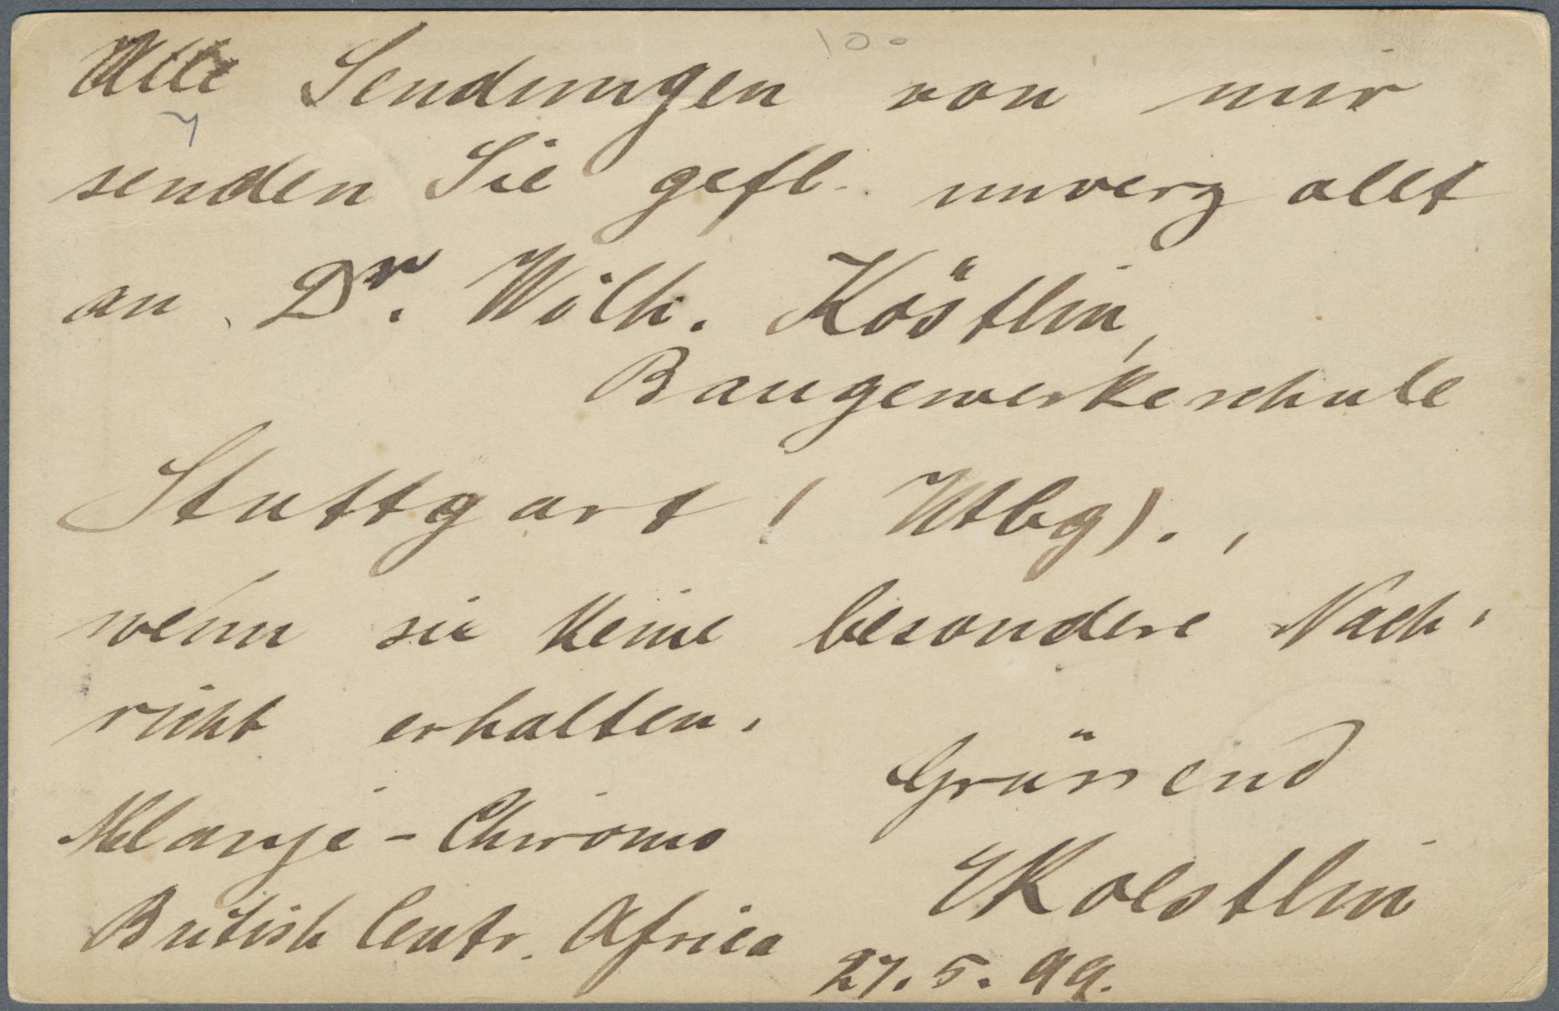 100
Alle Sendungen von mir
senden Sie gefl. unverz allt
an Dr. Wilh. Köstlin,
Baugewerkeschule
Stuttgart (Wtbg).,
wenn sie keine besondere Nach-
richt erhalten.
Grüssend
Mlanje - Chiromo
EKoestlin
British Centr. Africa
27.5.99.